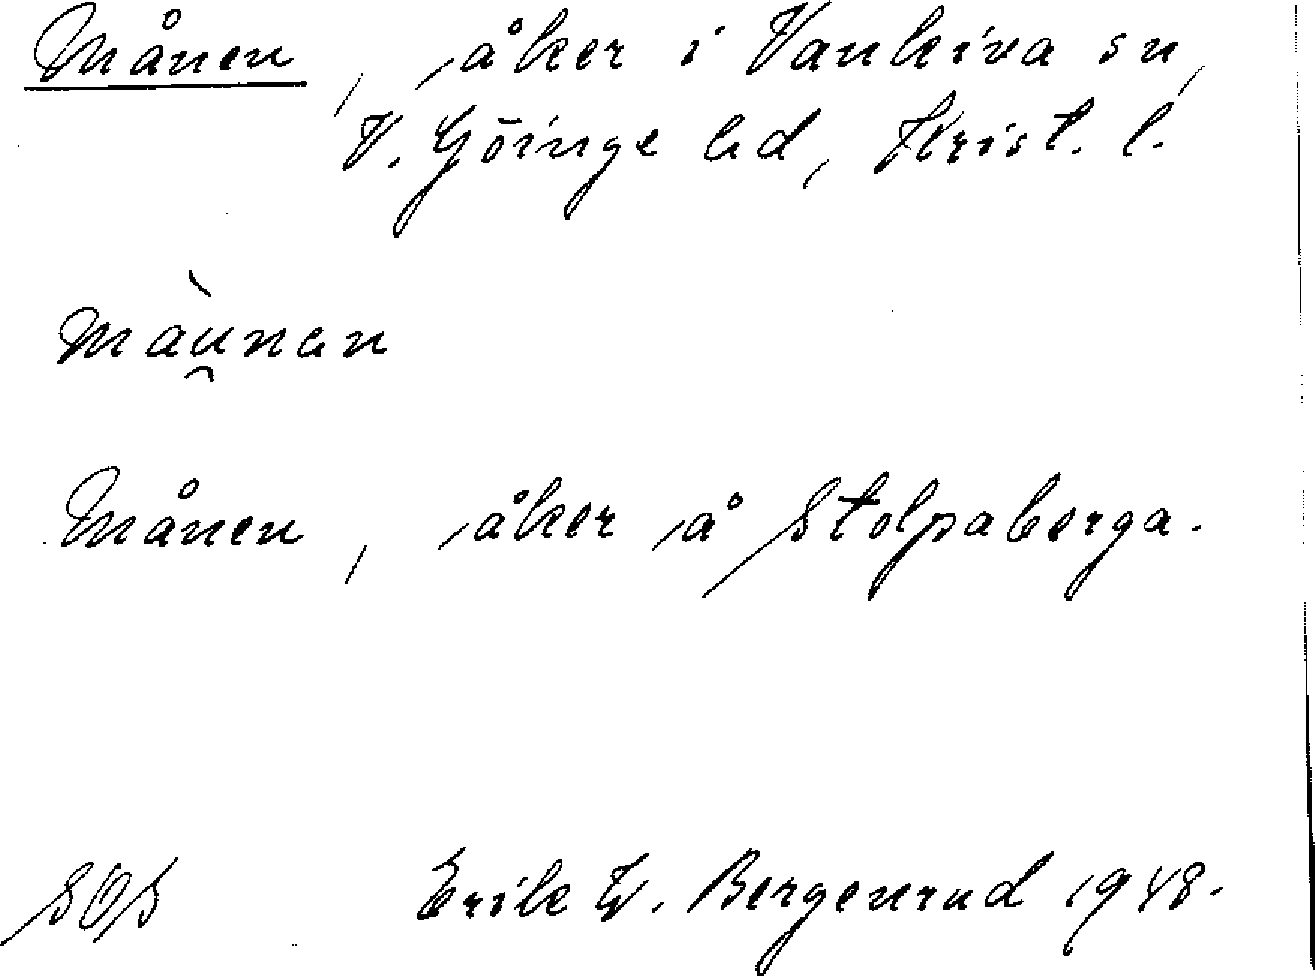 Månen, åker i Vankiva sn,
V. Göinge hd, Krist. l.
màu̯nan
Månen, åker å Stolpaberga.
SOS Erik W. Bergenrud 1948.